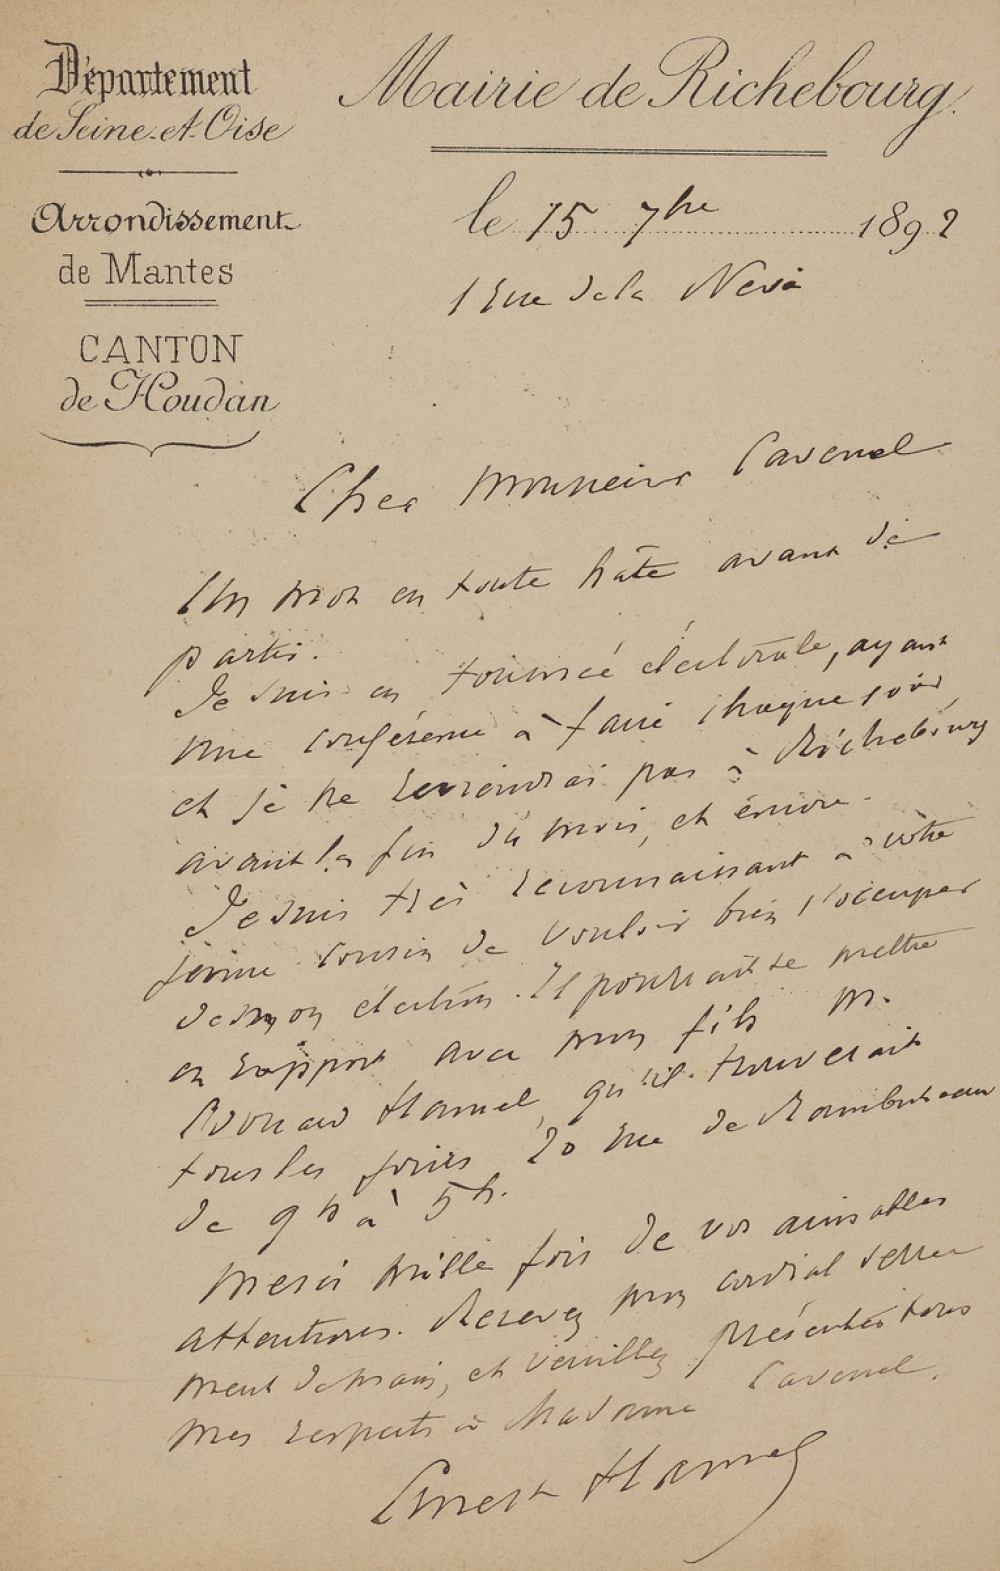 Département
de Seine-et-Oise
Arrondissement
de Mantes
CANTON
de Houdan
Mairie de Richebourg.
le 15 7bre 1892
1 rue de la Neva
Cher Monsieur Cavenel
Un mot en toute hâte avant de
partir.
Je suis en tournée électorale, ayant
une conférence à faire chaque soir,
et je ne reviendrai pas à Richebourg
avant la fin du mois, et encore.
Je suis très reconnaissant à votre
jeune cousin de vouloir bien s'occuper
de mon élection. Il pourrait se mettre
en rapport avec mon fils M.
Edouard Hamel, qu'il trouverait
tous les jours 20 rue de Rambuteau
de 9 h à 5 h.
Merci mille fois de vos aimables
attentions. Recevez mon cordial serre
ment de main, et veuillez présenter tous
mes respects à Madame Cavenel.
Ernest Hamel